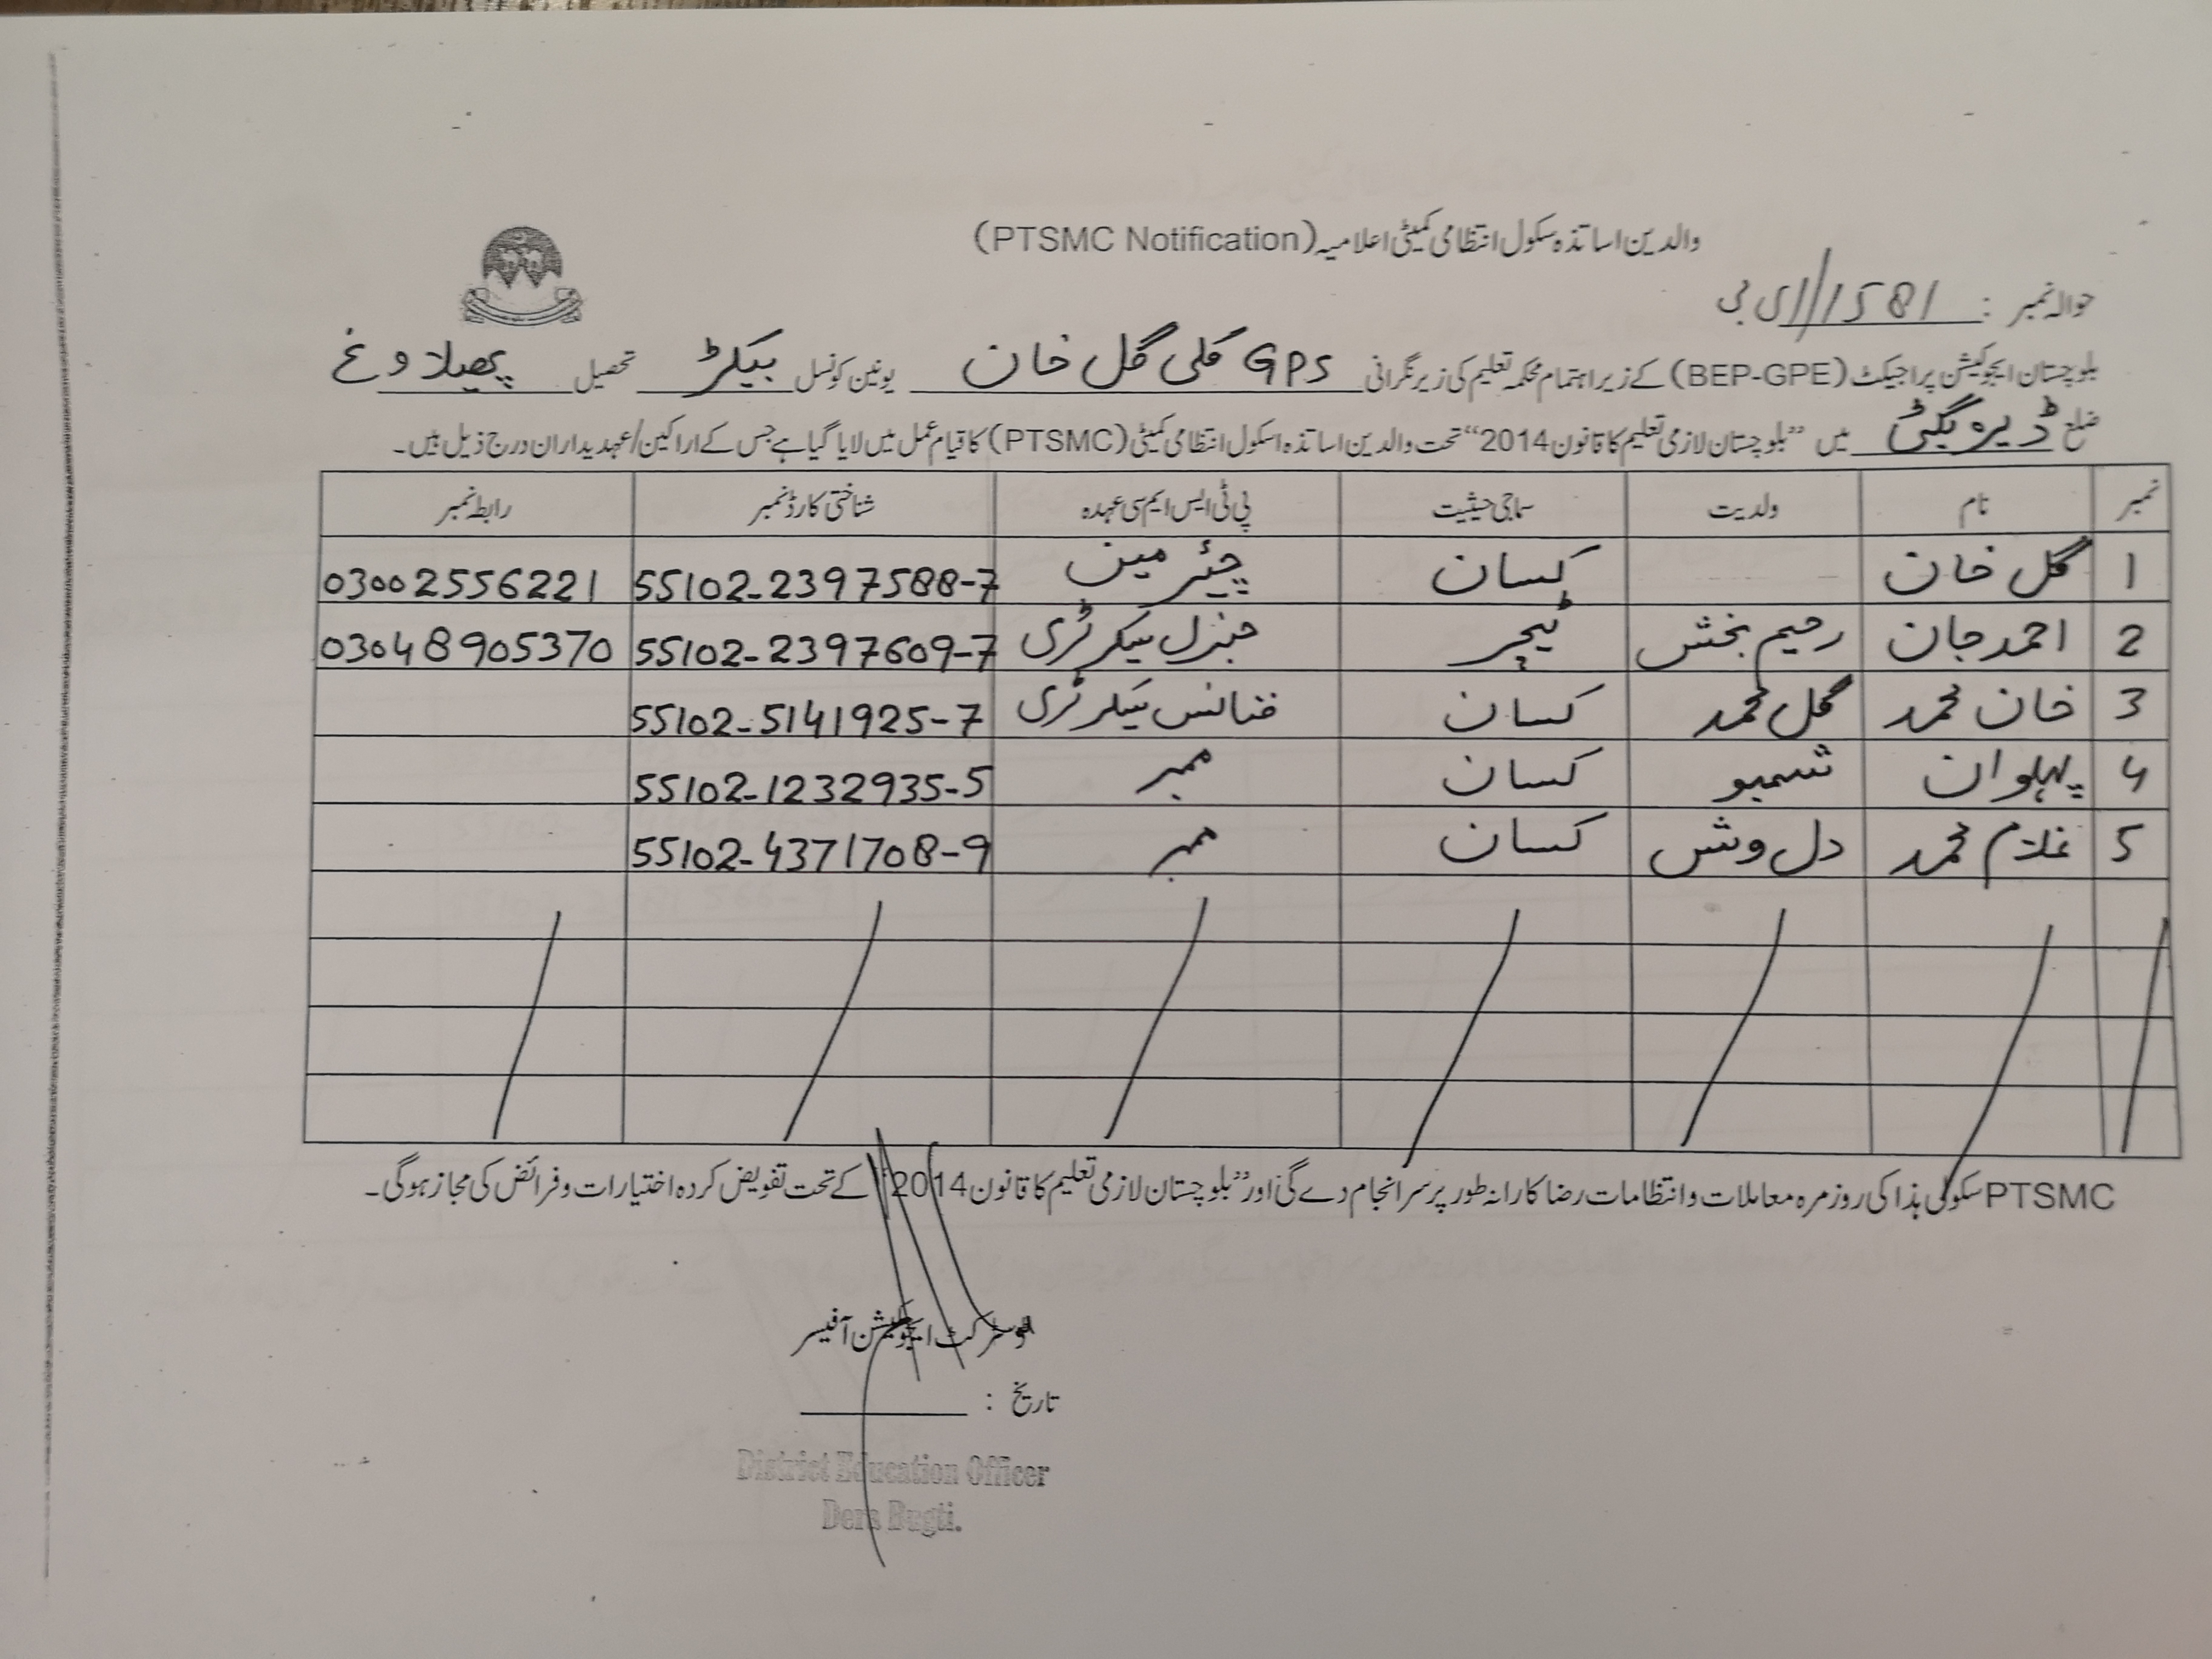 والدین اساتذہ سکول انتظامی کمیٹی اعلامیہ (PTSMC Notification)
حوالہ نمبر : 1581//ای بی
بلوچستان ایجوکیشن پراجیکٹ (BEP-GPE) کے زیر اہتمام محکمہ تعلیم کی زیر نگرانی GPS کلی گل خان یونین کونسل بیکڑ تحصیل پھیلاوغ
ضلع ڈیرہ بگٹی میں ”بلوچستان لازمی تعلیم کا قانون 2014“ تحت والدین اساتذہ اسکول انتظامی کمیٹی (PTSMC) کا قیام عمل میں لایا گیا ہے جس کے اراکین/عہدیداران درج ذیل ہیں۔
نمبر نام ولدیت سماجی حیثیت پی ٹی ایس ایم سی عہدہ شناختی کارڈ نمبر رابطہ نمبر
1 گل خان کسان چئیرمین 55102-2397588-7 03002556221
2 احمد جان رحیم بخش ٹیچر جنرل سیکرٹری 55102-2397609-7 03048905370
3 خان محمد گل محمد کسان فنانس سیکرٹری 55102-5141925-7
4 پہلوان شمبو کسان ممبر 55102-1232935-5
5 غلام محمد دل وش کسان ممبر 55102-4371708-9
PTSMC سکول ہذا کی روزمرہ معاملات و انتظامات رضاکارانہ طور پر سرانجام دے گی اور ”بلوچستان لازمی تعلیم کا قانون 2014“ کے تحت تفویض کردہ اختیارات و فرائض کی مجاز ہوگی۔
ڈسٹرکٹ ایجوکیشن آفیسر
تاریخ :
District Education Officer
Dera Bugti.